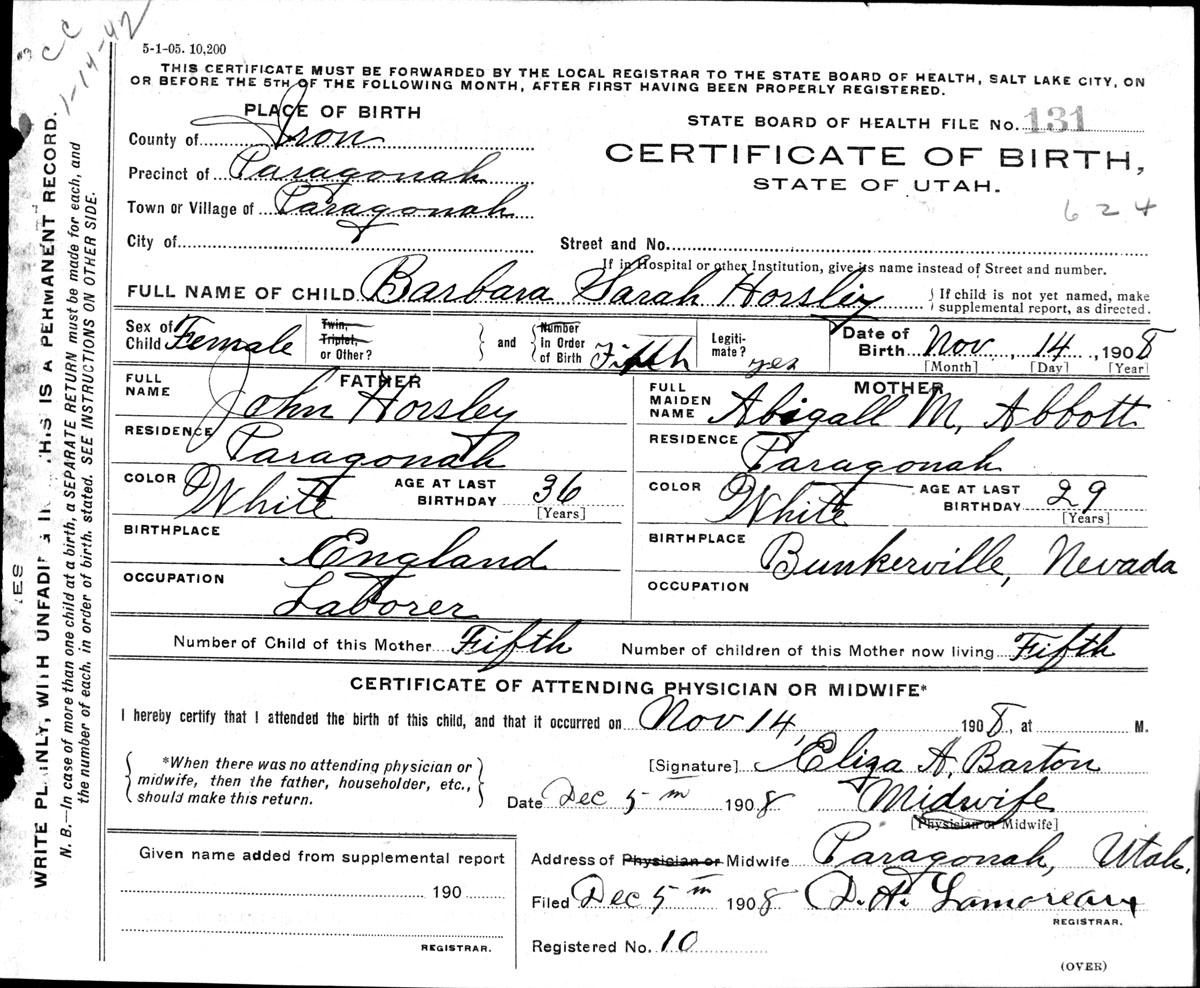 CC
1-14-42
5-1-05. 10,200
THIS CERTIFICATE MUST BE FORWARDED BY THE LOCAL REGISTRAR TO THE STATE BOARD OF HEALTH, SALT LAKE CITY, ON
OR BEFORE THE 5TH OF THE FOLLOWING MONTH, AFTER FIRST HAVING BEEN PROPERLY REGISTERED.
PLACE OF BIRTH
County of Iron
Precinct of Paragonah
Town or Village of Paragonah
City of
STATE BOARD OF HEALTH FILE No. 131
CERTIFICATE OF BIRTH,
STATE OF UTAH.
624
Street and No.
If in Hospital or other Institution, give its name instead of Street and number.
FULL NAME OF CHILD Barbara Sarah Horsley
If child is not yet named, make
supplemental report, as directed.
Sex of
Child Female
Twin,
Triplet,
or Other?
and
Number
in Order
of Birth Fifth
Legiti-
mate? yes
Date of
Birth Nov, 14, 1908
[Month] [Day] [Year]
FATHER
FULL
NAME John Horsley
RESIDENCE Paragonah
COLOR White
AGE AT LAST
BIRTHDAY 36
[Years]
BIRTHPLACE England
OCCUPATION Laborer
MOTHER
FULL
MAIDEN
NAME Abigall M. Abbott
RESIDENCE Paragonah
COLOR White
AGE AT LAST
BIRTHDAY 29
[Years]
BIRTHPLACE Bunkerville, Nevada
OCCUPATION
Number of Child of this Mother Fifth Number of children of this Mother now living Fifth
CERTIFICATE OF ATTENDING PHYSICIAN OR MIDWIFE*
I hereby certify that I attended the birth of this child, and that it occurred on Nov 14, 1908, at M.
*When there was no attending physician or
midwife, then the father, householder, etc.,
should make this return.
[Signature] Eliza A. Barton
Date Dec 5 th 1908 Midwife
[Physician or Midwife]
Given name added from supplemental report
190
REGISTRAR.
Address of Physician or Midwife Paragonah, Utah.
Filed Dec 5 th 1908 D. A. Lamoreaux
REGISTRAR.
Registered No. 10
(OVER)
WRITE PLAINLY, WITH UNFADING THIS IS A PERMANENT RECORD.
N. B.—In case of more than one child at a birth, a SEPARATE RETURN must be made for each, and
the number of each, in order of birth, stated. SEE INSTRUCTIONS ON OTHER SIDE.